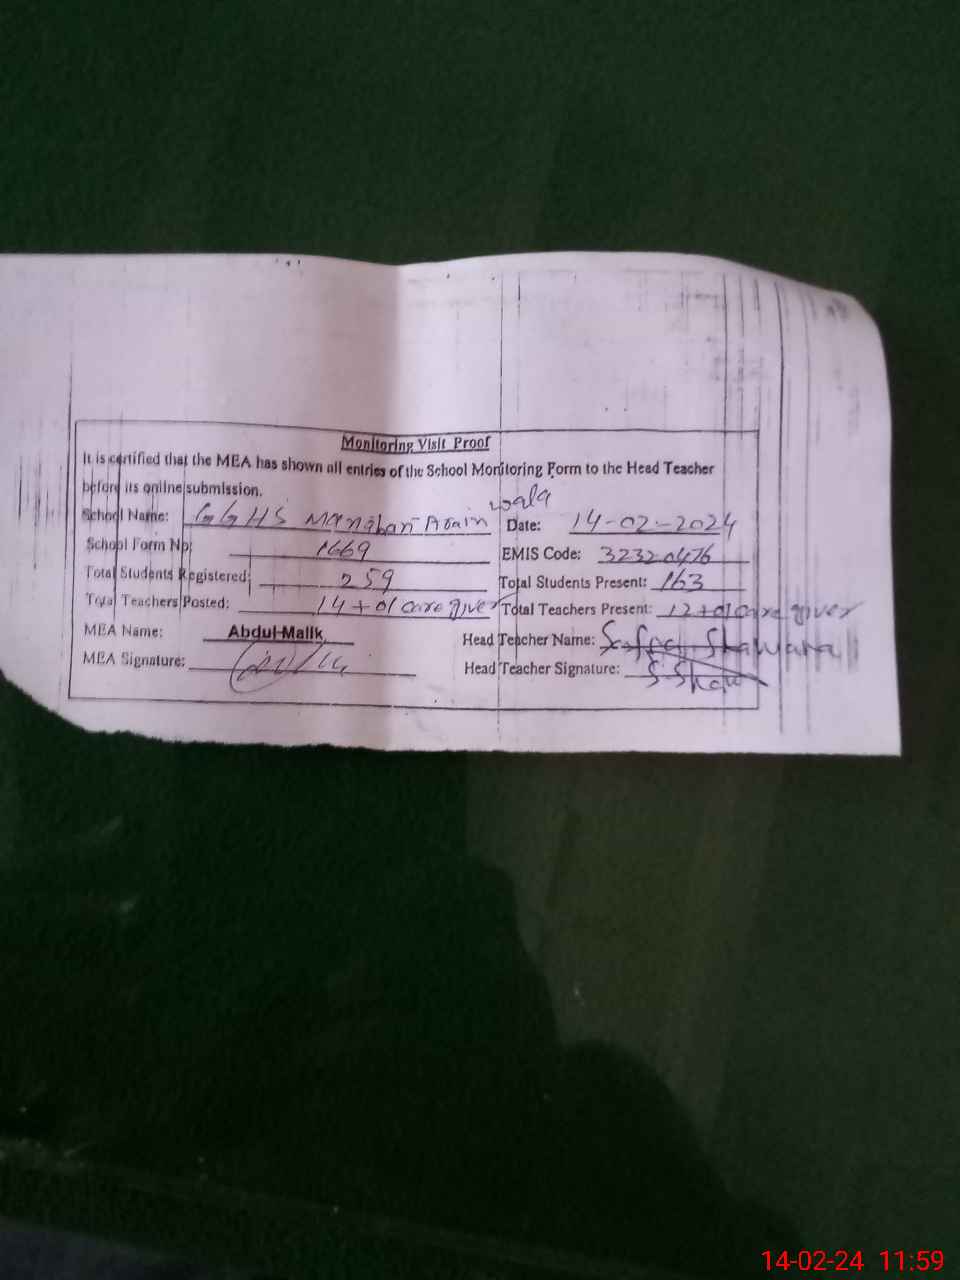 Monitoring Visit Proof
It is certified that the MEA has shown all entries of the School Monitoring Form to the Head Teacher
before its online submission.
School Name: GGHS Manahan Arain wala Date: 14-02-2024
School Form No: 1669 EMIS Code: 32320476
Total Students Registered: 259 Total Students Present: 163
Total Teachers Posted: 14+01 care giver Total Teachers Present: 12+01 care giver
MEA Name: Abdul Malik Head Teacher Name:
MEA Signature: Head Teacher Signature: S.Shaw
14-02-24 11:59